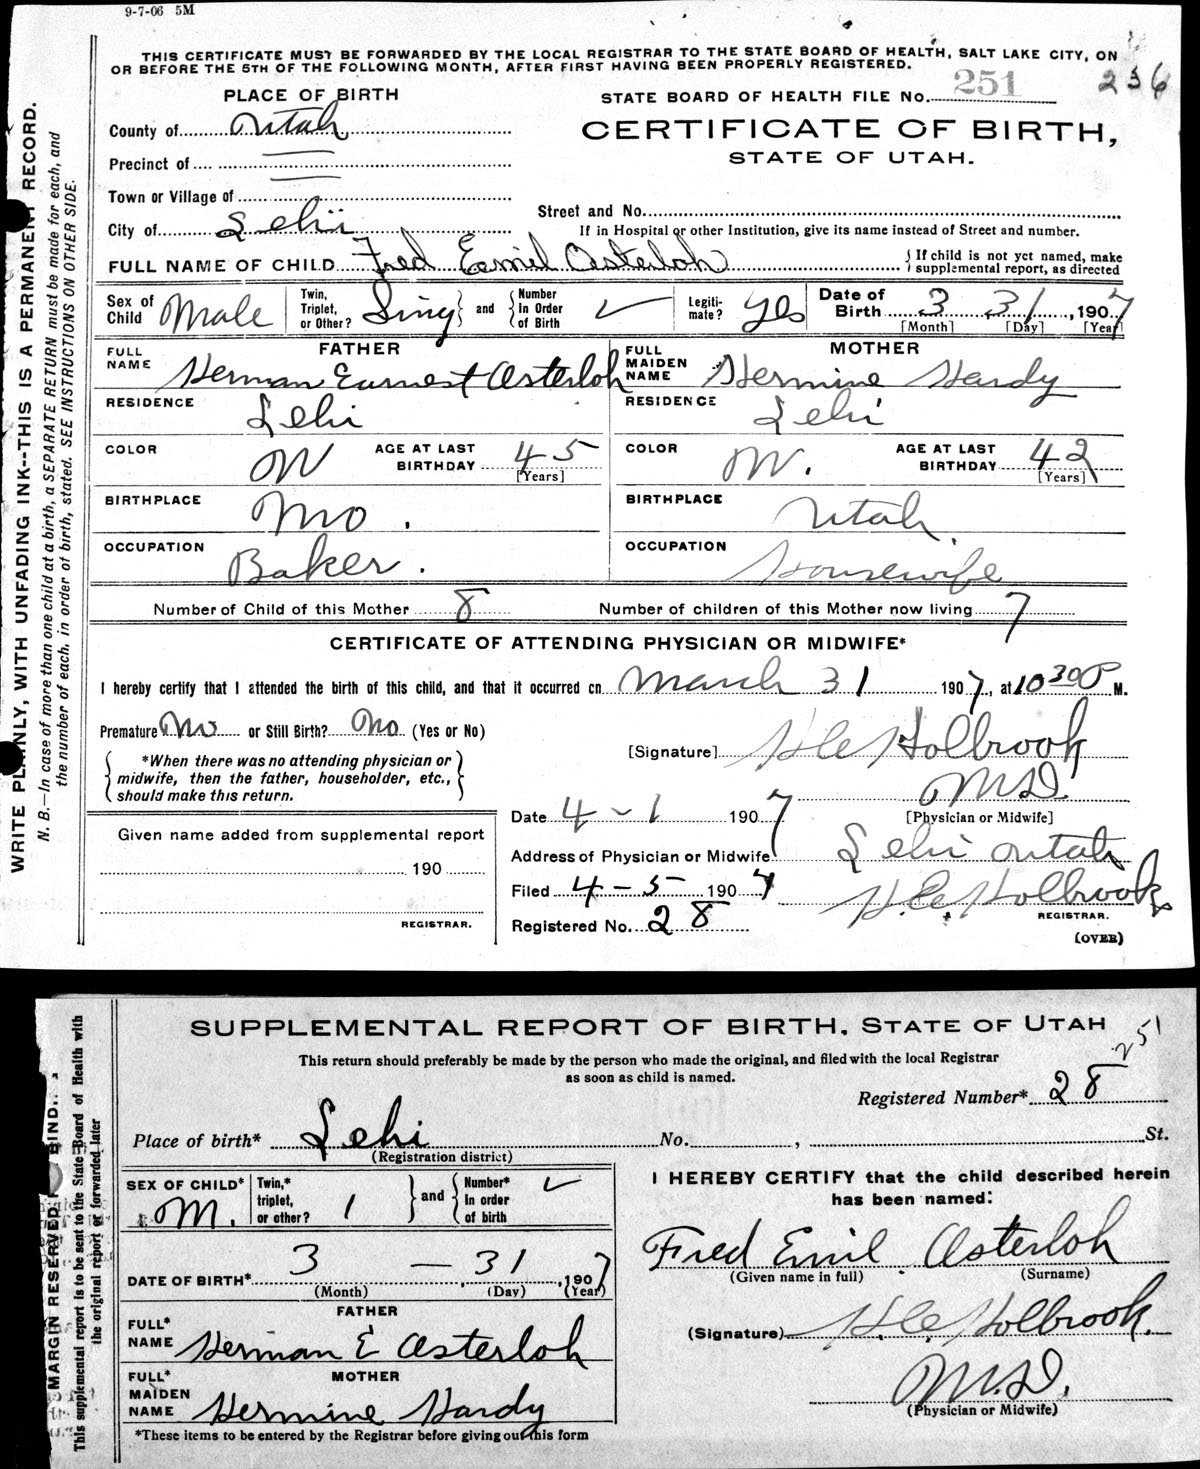 9-7-06 5M
THIS CERTIFICATE MUST BE FORWARDED BY THE LOCAL REGISTRAR TO THE STATE BOARD OF HEALTH, SALT LAKE CITY, ON
OR BEFORE THE 5TH OF THE FOLLOWING MONTH, AFTER FIRST HAVING BEEN PROPERLY REGISTERED.
236
PLACE OF BIRTH
STATE BOARD OF HEALTH FILE No. 251
County of Utah
CERTIFICATE OF BIRTH,
STATE OF UTAH.
Precinct of
Town or Village of
Street and No.
City of Lehi
If in Hospital or other Institution, give its name instead of Street and number.
FULL NAME OF CHILD Fred Eamil Osterloh
{ If child is not yet named, make
supplemental report, as directed
Sex of Child Male
Twin, Triplet, or Other? Sing } and { Number In Order of Birth ✓
Legiti-mate? yes
Date of Birth 3 31, 1907
[Month] [Day] [Year]
FATHER
MOTHER
FULL NAME Herman Earnest Osterloh
FULL MAIDEN NAME Hermine Hardy
RESIDENCE Lehi
RESIDENCE Lehi
COLOR W AGE AT LAST BIRTHDAY 45 [Years]
COLOR W. AGE AT LAST BIRTHDAY 42 [Years]
BIRTHPLACE Mo.
BIRTHPLACE Utah
OCCUPATION Baker.
OCCUPATION Housewife
Number of Child of this Mother 8 Number of children of this Mother now living 7
CERTIFICATE OF ATTENDING PHYSICIAN OR MIDWIFE*
I hereby certify that I attended the birth of this child, and that it occurred on March 31 1907, at 10 30 P M.
Premature No or Still Birth? No (Yes or No)
[Signature] H.C. Holbrook
M.D.
[Physician or Midwife]
{ *When there was no attending physician or
midwife, then the father, householder, etc.,
should make this return. }
Date 4-1 1907
Given name added from supplemental report
190
REGISTRAR.
Address of Physician or Midwife Lehi Utah
Filed 4-5 1907 H.C. Holbrook
REGISTRAR.
Registered No. 28
(OVER)
WRITE PLAINLY, WITH UNFADING INK--THIS IS A PERMANENT RECORD.
N. B.—In case of more than one child at a birth, a SEPARATE RETURN must be made for each, and
the number of each, in order of birth, stated. SEE INSTRUCTIONS ON OTHER SIDE.
SUPPLEMENTAL REPORT OF BIRTH, STATE OF UTAH
251
This return should preferably be made by the person who made the original, and filed with the local Registrar
as soon as child is named.
Registered Number* 28
Place of birth* Lehi No. , St.
(Registration district)
SEX OF CHILD* M.
Twin,* triplet, or other? 1 } and { Number* In order of birth ✓
I HEREBY CERTIFY that the child described herein
has been named:
Fred Emil Osterloh
(Given name in full) (Surname)
DATE OF BIRTH* 3 - 31, 1907
(Month) (Day) (Year)
FATHER
FULL* NAME Herman E Osterloh
(Signature) H.C. Holbrook.
M.D.
(Physician or Midwife)
MOTHER
FULL* MAIDEN NAME Hermine Hardy
*These items to be entered by the Registrar before giving out this form
This supplemental report is to be sent to the State Board of Health with
the original report or forwarded later